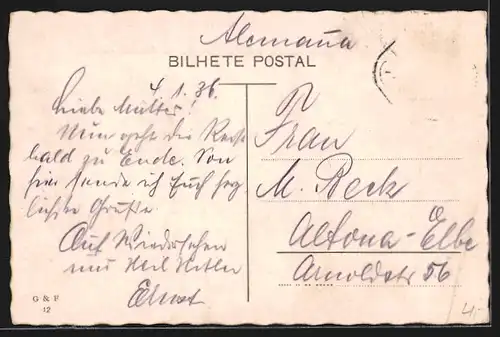 Alemaña
BILHETE POSTAL
4.1.36.
Liebe Mutter!
Nun geht die Reise
bald zu Ende. Von
hier sende ich Euch herz
lichste Grüße.
Auf Wiedersehen
und Heil Hitler
Ernst
Frau
M. Beck
Altona-Elbe
Arnoldstr 56
G & F
12
4.-